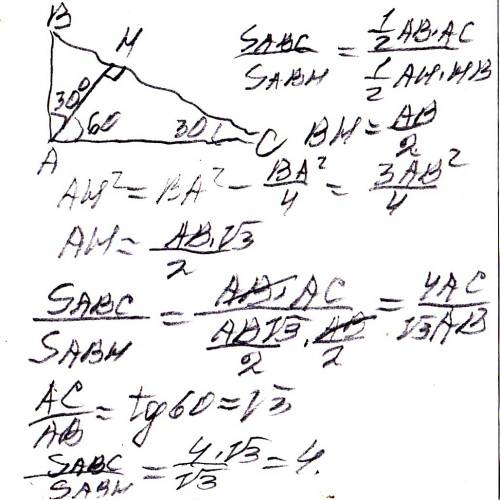 B
H
30°
60
30
A
C
S_ABC / S_ABH = (1/2 AB·AC) / (1/2 AH·HB)
BH = AB/2
AH² = BA² - BA²/4 = 3AB²/4
AH = AB·√3 / 2
S_ABC / S_ABH = AB·AC / (AB√3/2 · AB/2) = 4AC / √3AB
AC/AB = tg60 = √3
S_ABC / S_ABH = 4·√3 / √3 = 4.